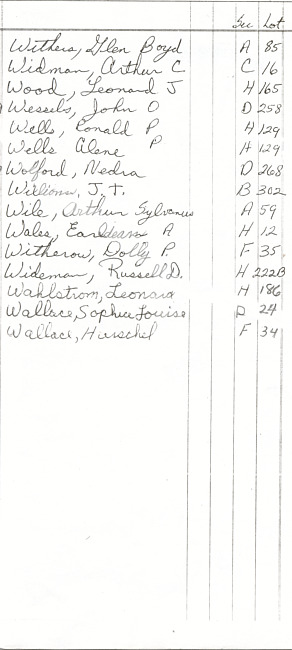 Sec Lot
Withers, Glen Boyd A 85
Widman, Arthur C C 16
Wood, Leonard J H 165
Wessels, John O D 258
Wells, Ronald P H 129
Wells Alene P H 129
Wolford, Nedra D 268
Williams, J.T. B 302
Wile, Arthur Sylvanus A 59
Wales, Earldean A H 12
Witherow, Dolly P. F 35
Wideman, Russell D. H 222B
Wahlstrom, Leonard H 186
Wallace, Sophia Louise D 24
Wallace, Herschel F 34